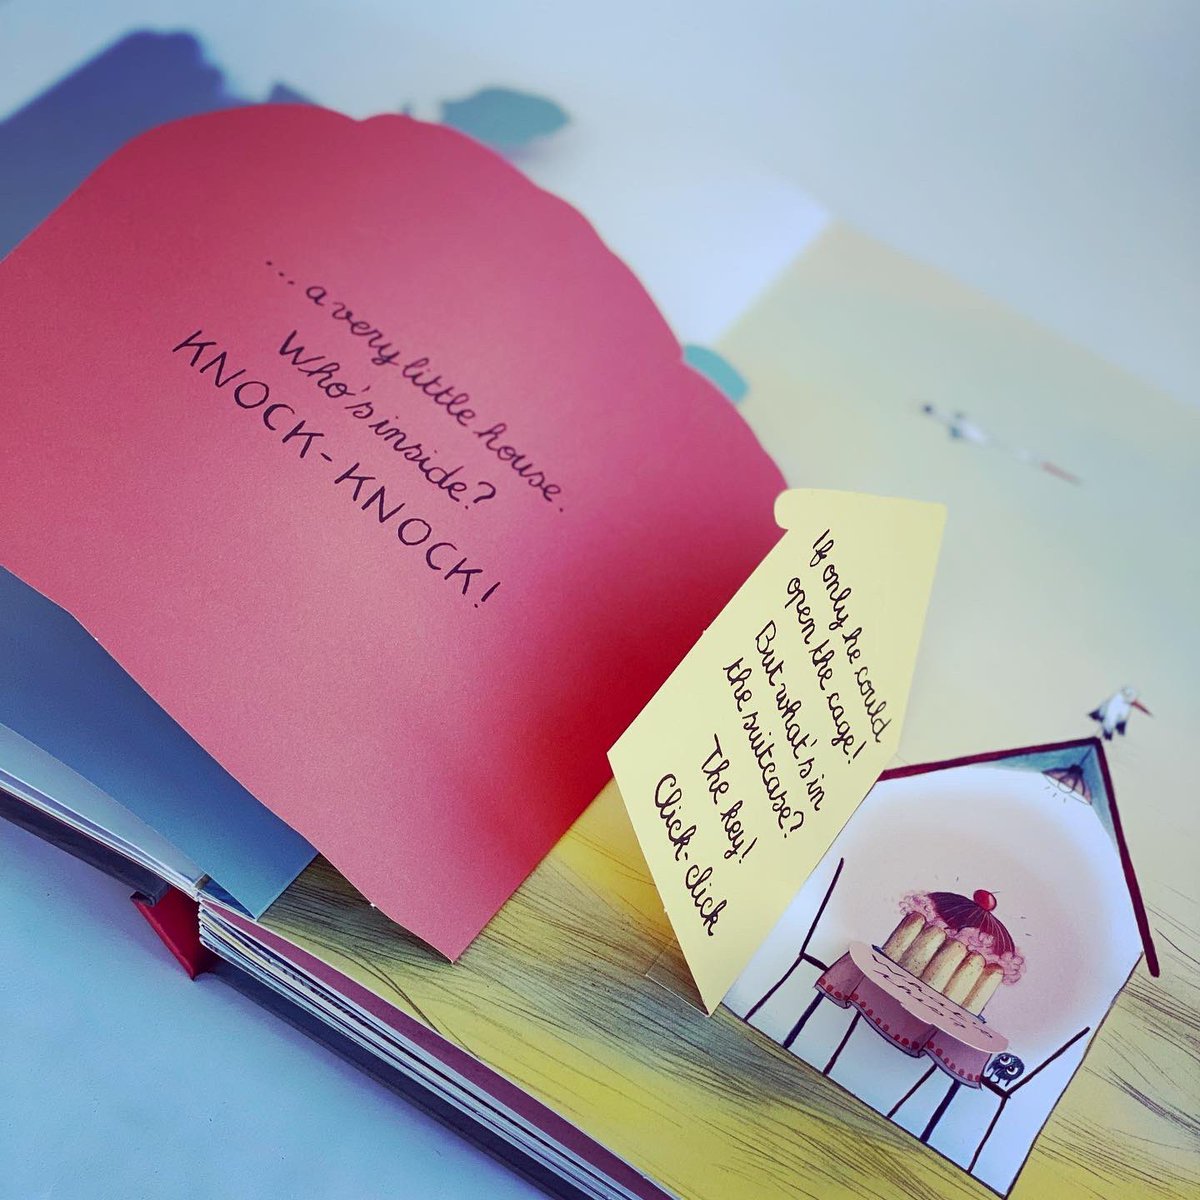 ...a very little house.
Who's inside?
KNOCK-KNOCK!
If only he could
open the cage!
But what's in
the suitcase?
The key!
Click-click